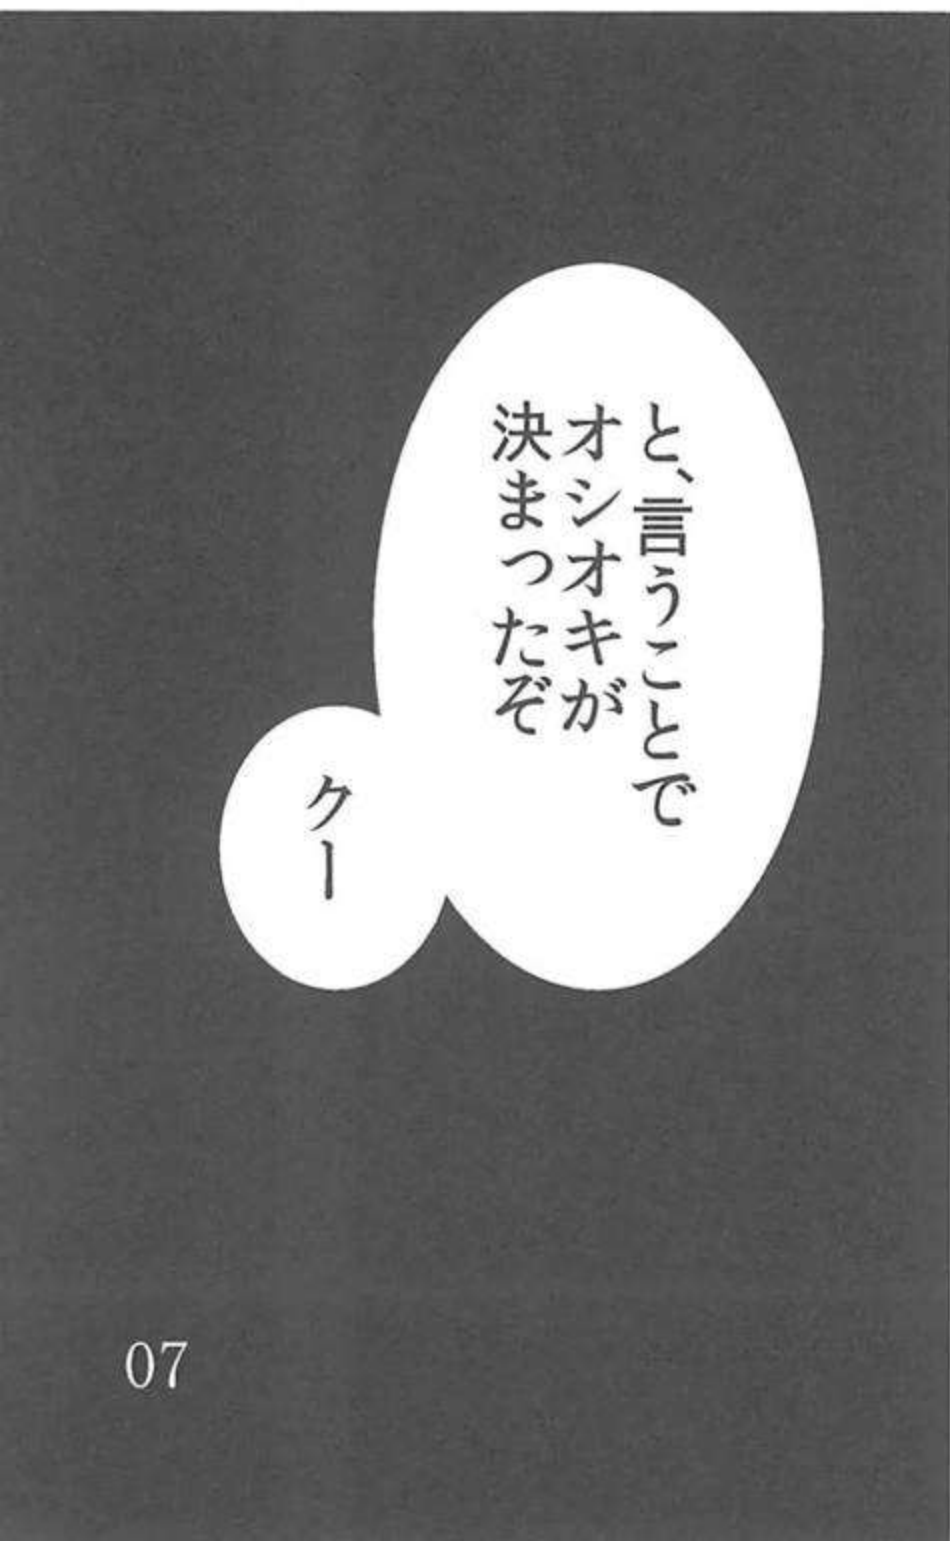 と、言うことで
オシオキが
決まったぞ
クー
07